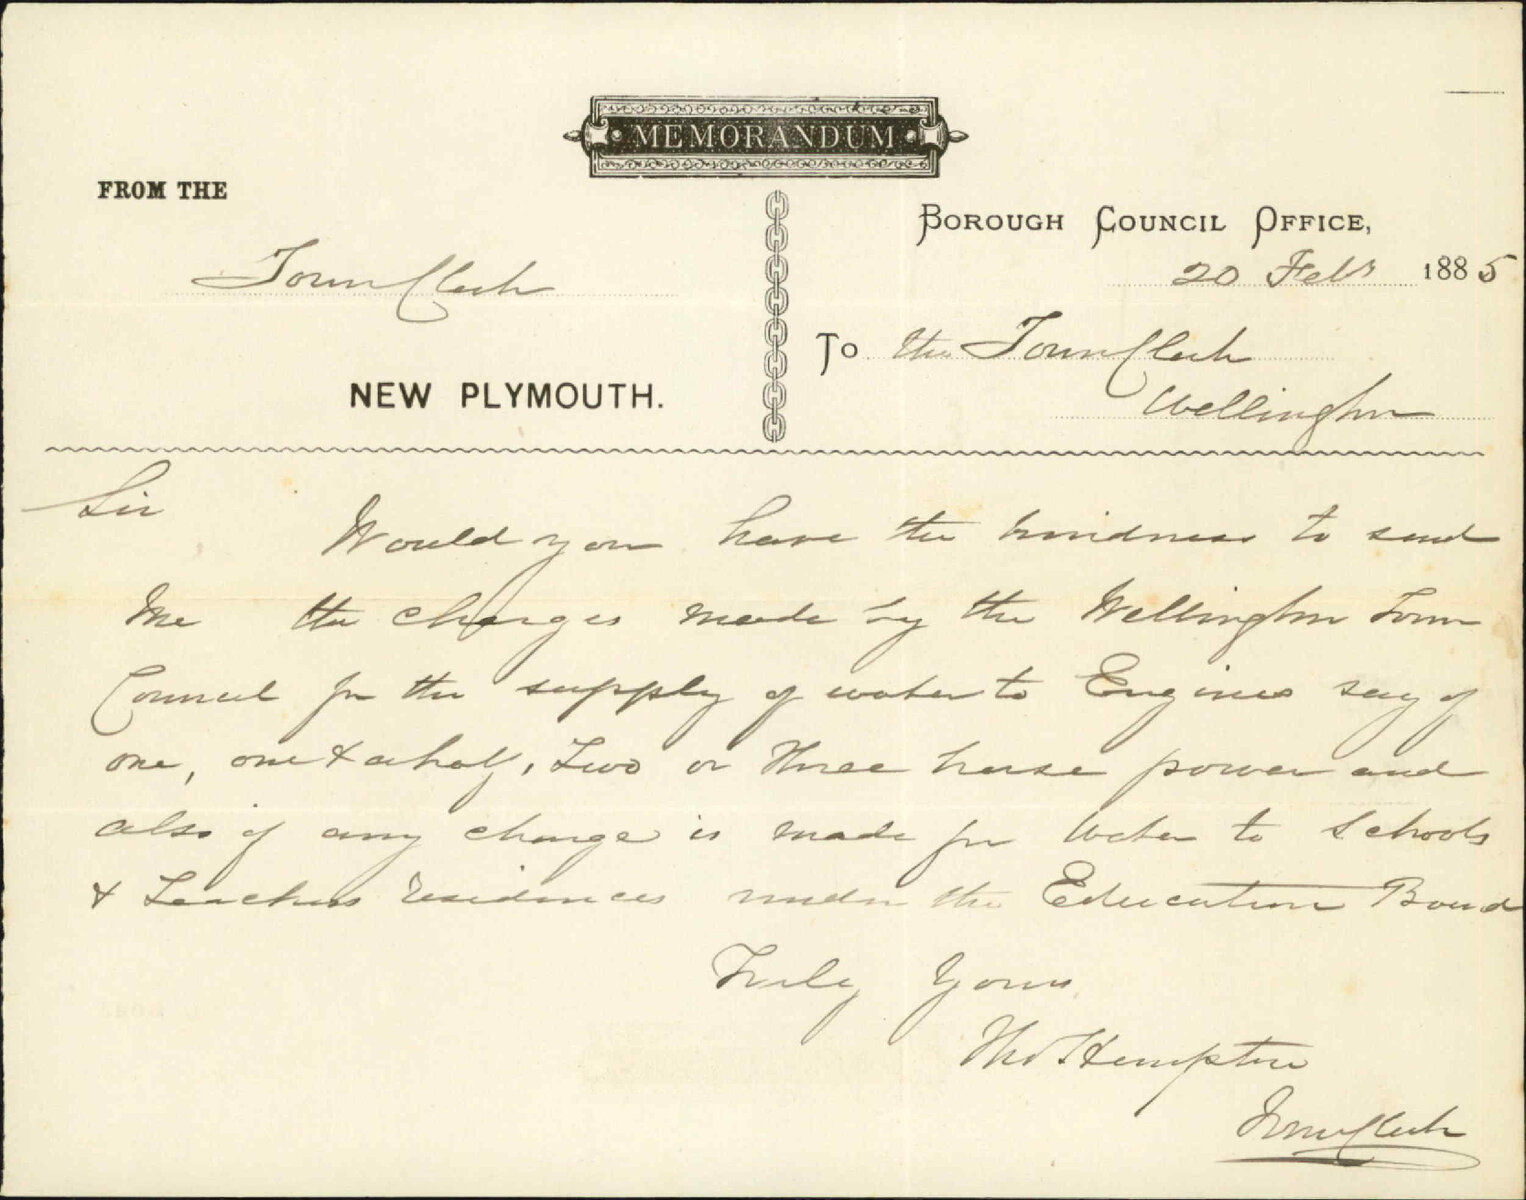 MEMORANDUM
FROM THE
Town Clerk
NEW PLYMOUTH.
BOROUGH COUNCIL OFFICE,
20 Feby 1885
To the Town Clerk
Wellington
Sir
Would you have the kindness to send
me the charges made by the Wellington Town
Council for the supply of water to Engines say of
one, one & a half, Two or Three horse power and
also if any charge is made for water to Schools
& Teachers residences under the Education Board
Truly Yours
Thos Hempton
Town Clerk